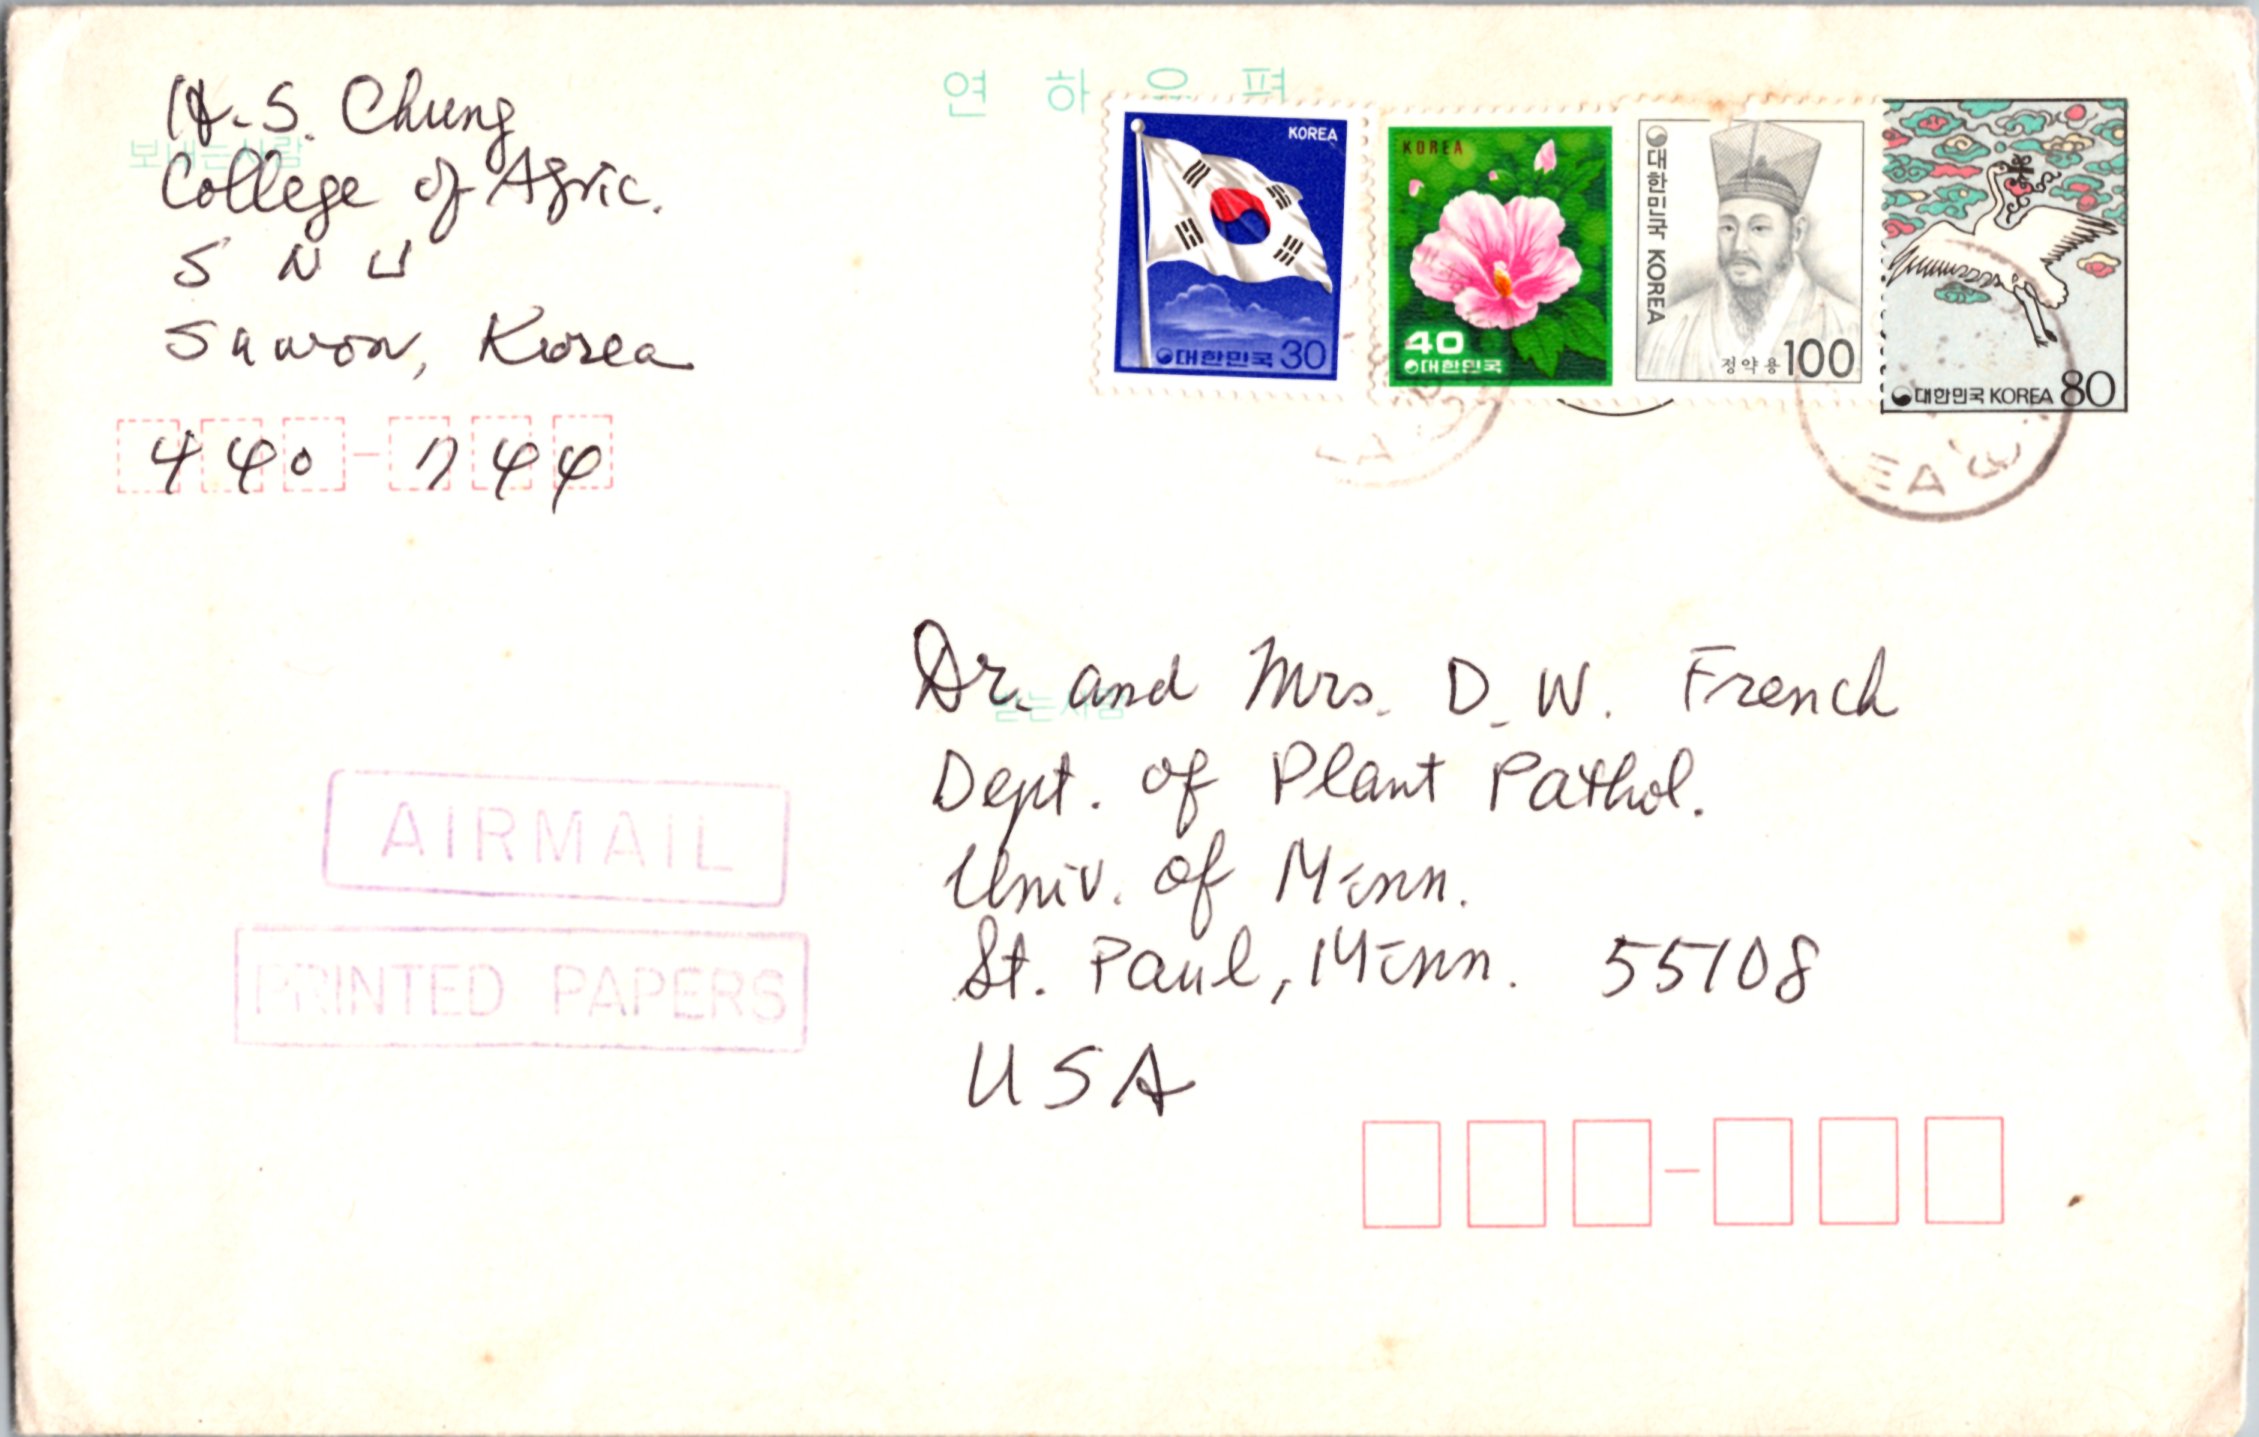 H. S. Chung
College of Agric.
S N U
Suwon, Korea
440-744
보내는사람
연하우편
KOREA
대한민국 30
KOREA
40
대한민국
대한민국 KOREA
정약용 100
대한민국 KOREA 80
Dr. and Mrs. D. W. French
받는사람
Dept. of Plant Pathol.
Univ. of Minn.
St. Paul, Minn. 55108
USA
AIRMAIL
PRINTED PAPERS